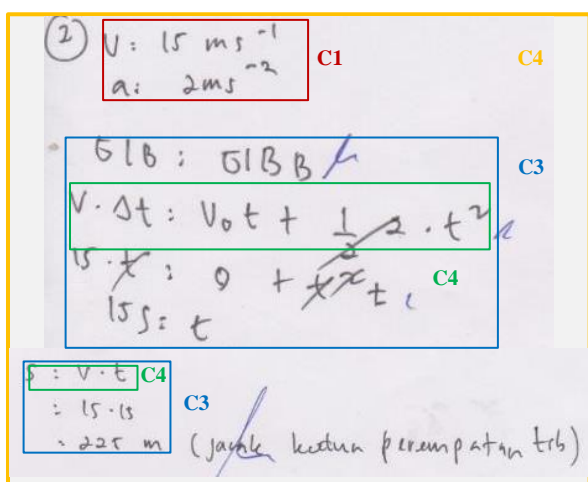 2 V: 15 ms⁻¹ C1 C4
a: 2ms⁻²
GLB: GLBB C3
V · Δt: V₀t + 1/2 2 · t²
15 · t: 0 + t² t C4
15 s: t
s: V · t C4
: 15 · 15 C3
: 225 m (jarak kedua perempatan tsb)